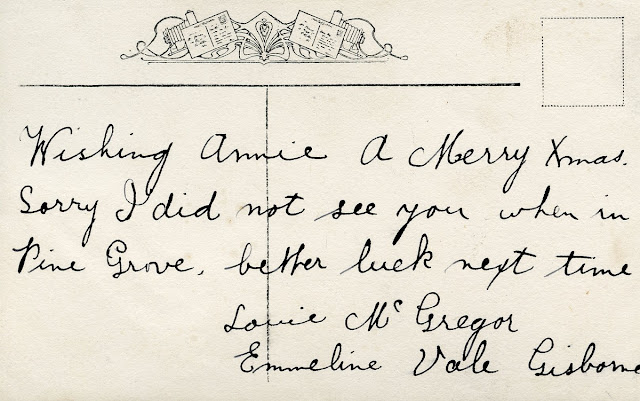 Wishing Annie A Merry Xmas.
Sorry I did not see you when in
Pine Grove. better luck next time
Louie Mc Gregor
Emmeline Vale Gisborne